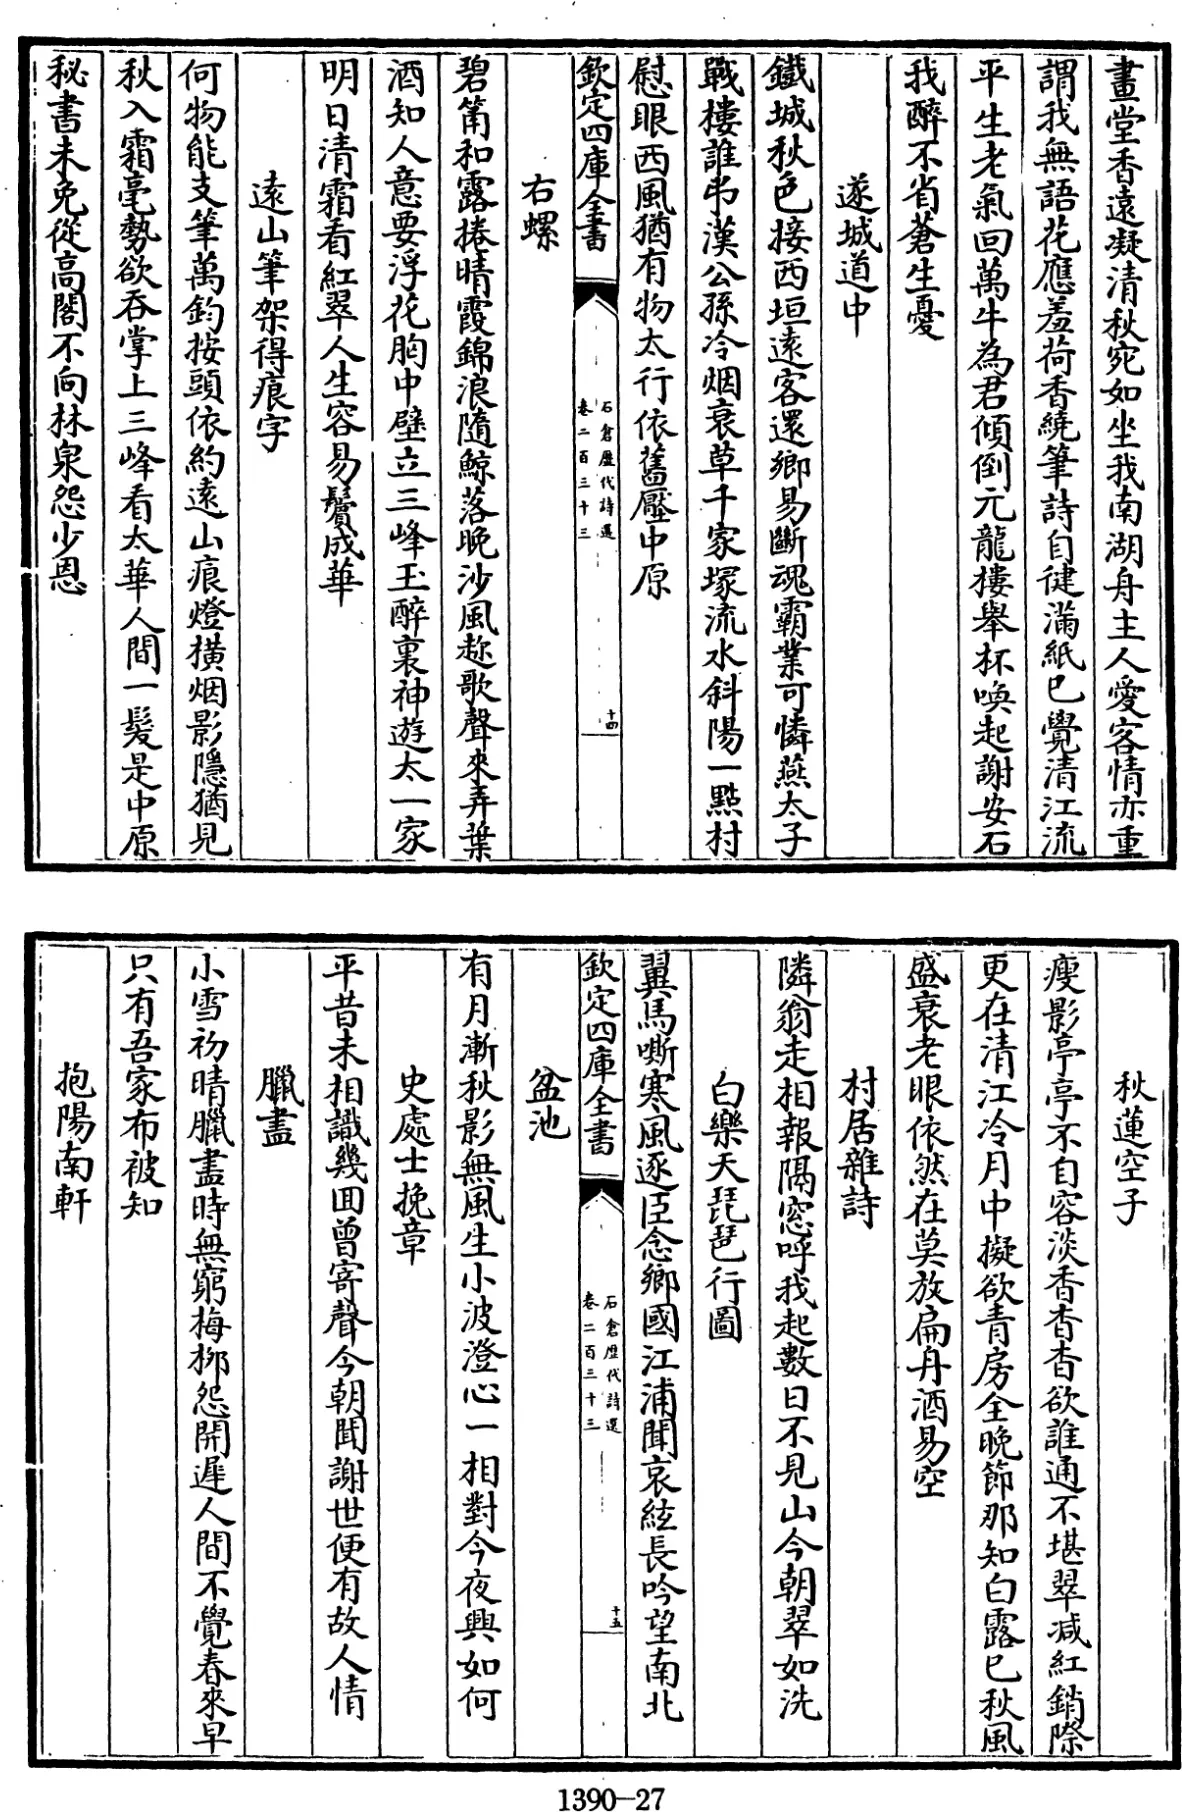 畫堂香遠凝清秋宛如坐我南湖舟主人愛客情亦重
謂我無語花應羞荷香繞筆詩自健滿紙已覺清江流
平生老氣回萬牛為君傾倒元龍樓舉杯喚起謝安石
我醉不省蒼生憂
遂城道中
鐵城秋色接西垣遠客還鄉易斷魂霸業可憐燕太子
戰樓誰弔漢公孫冷烟衰草千家塚流水斜陽一點村
慰眼西風猶有物太行依舊壓中原
欽定四庫全書
石倉歷代詩選
卷二百三十三
十四
右螺
碧筩和露捲晴霞錦浪隨鯨落晚沙風趂歌聲來弄葉
酒知人意要浮花胸中壁立三峰玉醉裏神遊太一家
明日清霜看紅翠人生容易鬢成華
遠山筆架得痕字
何物能支筆萬鈞按頭依約遠山痕燈橫烟影隱猶見
秋入霜毫勢欲吞掌上三峰看太華人間一髮是中原
秘書未免從高閣不向林泉怨少恩
秋蓮空子
瘦影亭亭不自容淡香杳杳欲誰通不堪翠減紅銷際
更在清江冷月中擬欲青房全晚節那知白露已秋風
盛衰老眼依然在莫放扁舟酒易空
村居雜詩
隣翁走相報隔窓呼我起數日不見山今朝翠如洗
白樂天琵琶行圖
冀馬嘶寒風逐臣念鄉國江浦聞哀絃長吟望南北
欽定四庫全書
石倉歷代詩選
卷二百三十三
十五
盆池
有月漸秋影無風生小波澄心一相對今夜興如何
史處士挽章
平昔未相識幾囬曾寄聲今朝聞謝世便有故人情
臘盡
小雪初晴臘盡時無窮梅栁怨開遲人間不覺春來早
只有吾家布被知
抱陽南軒
1390—27